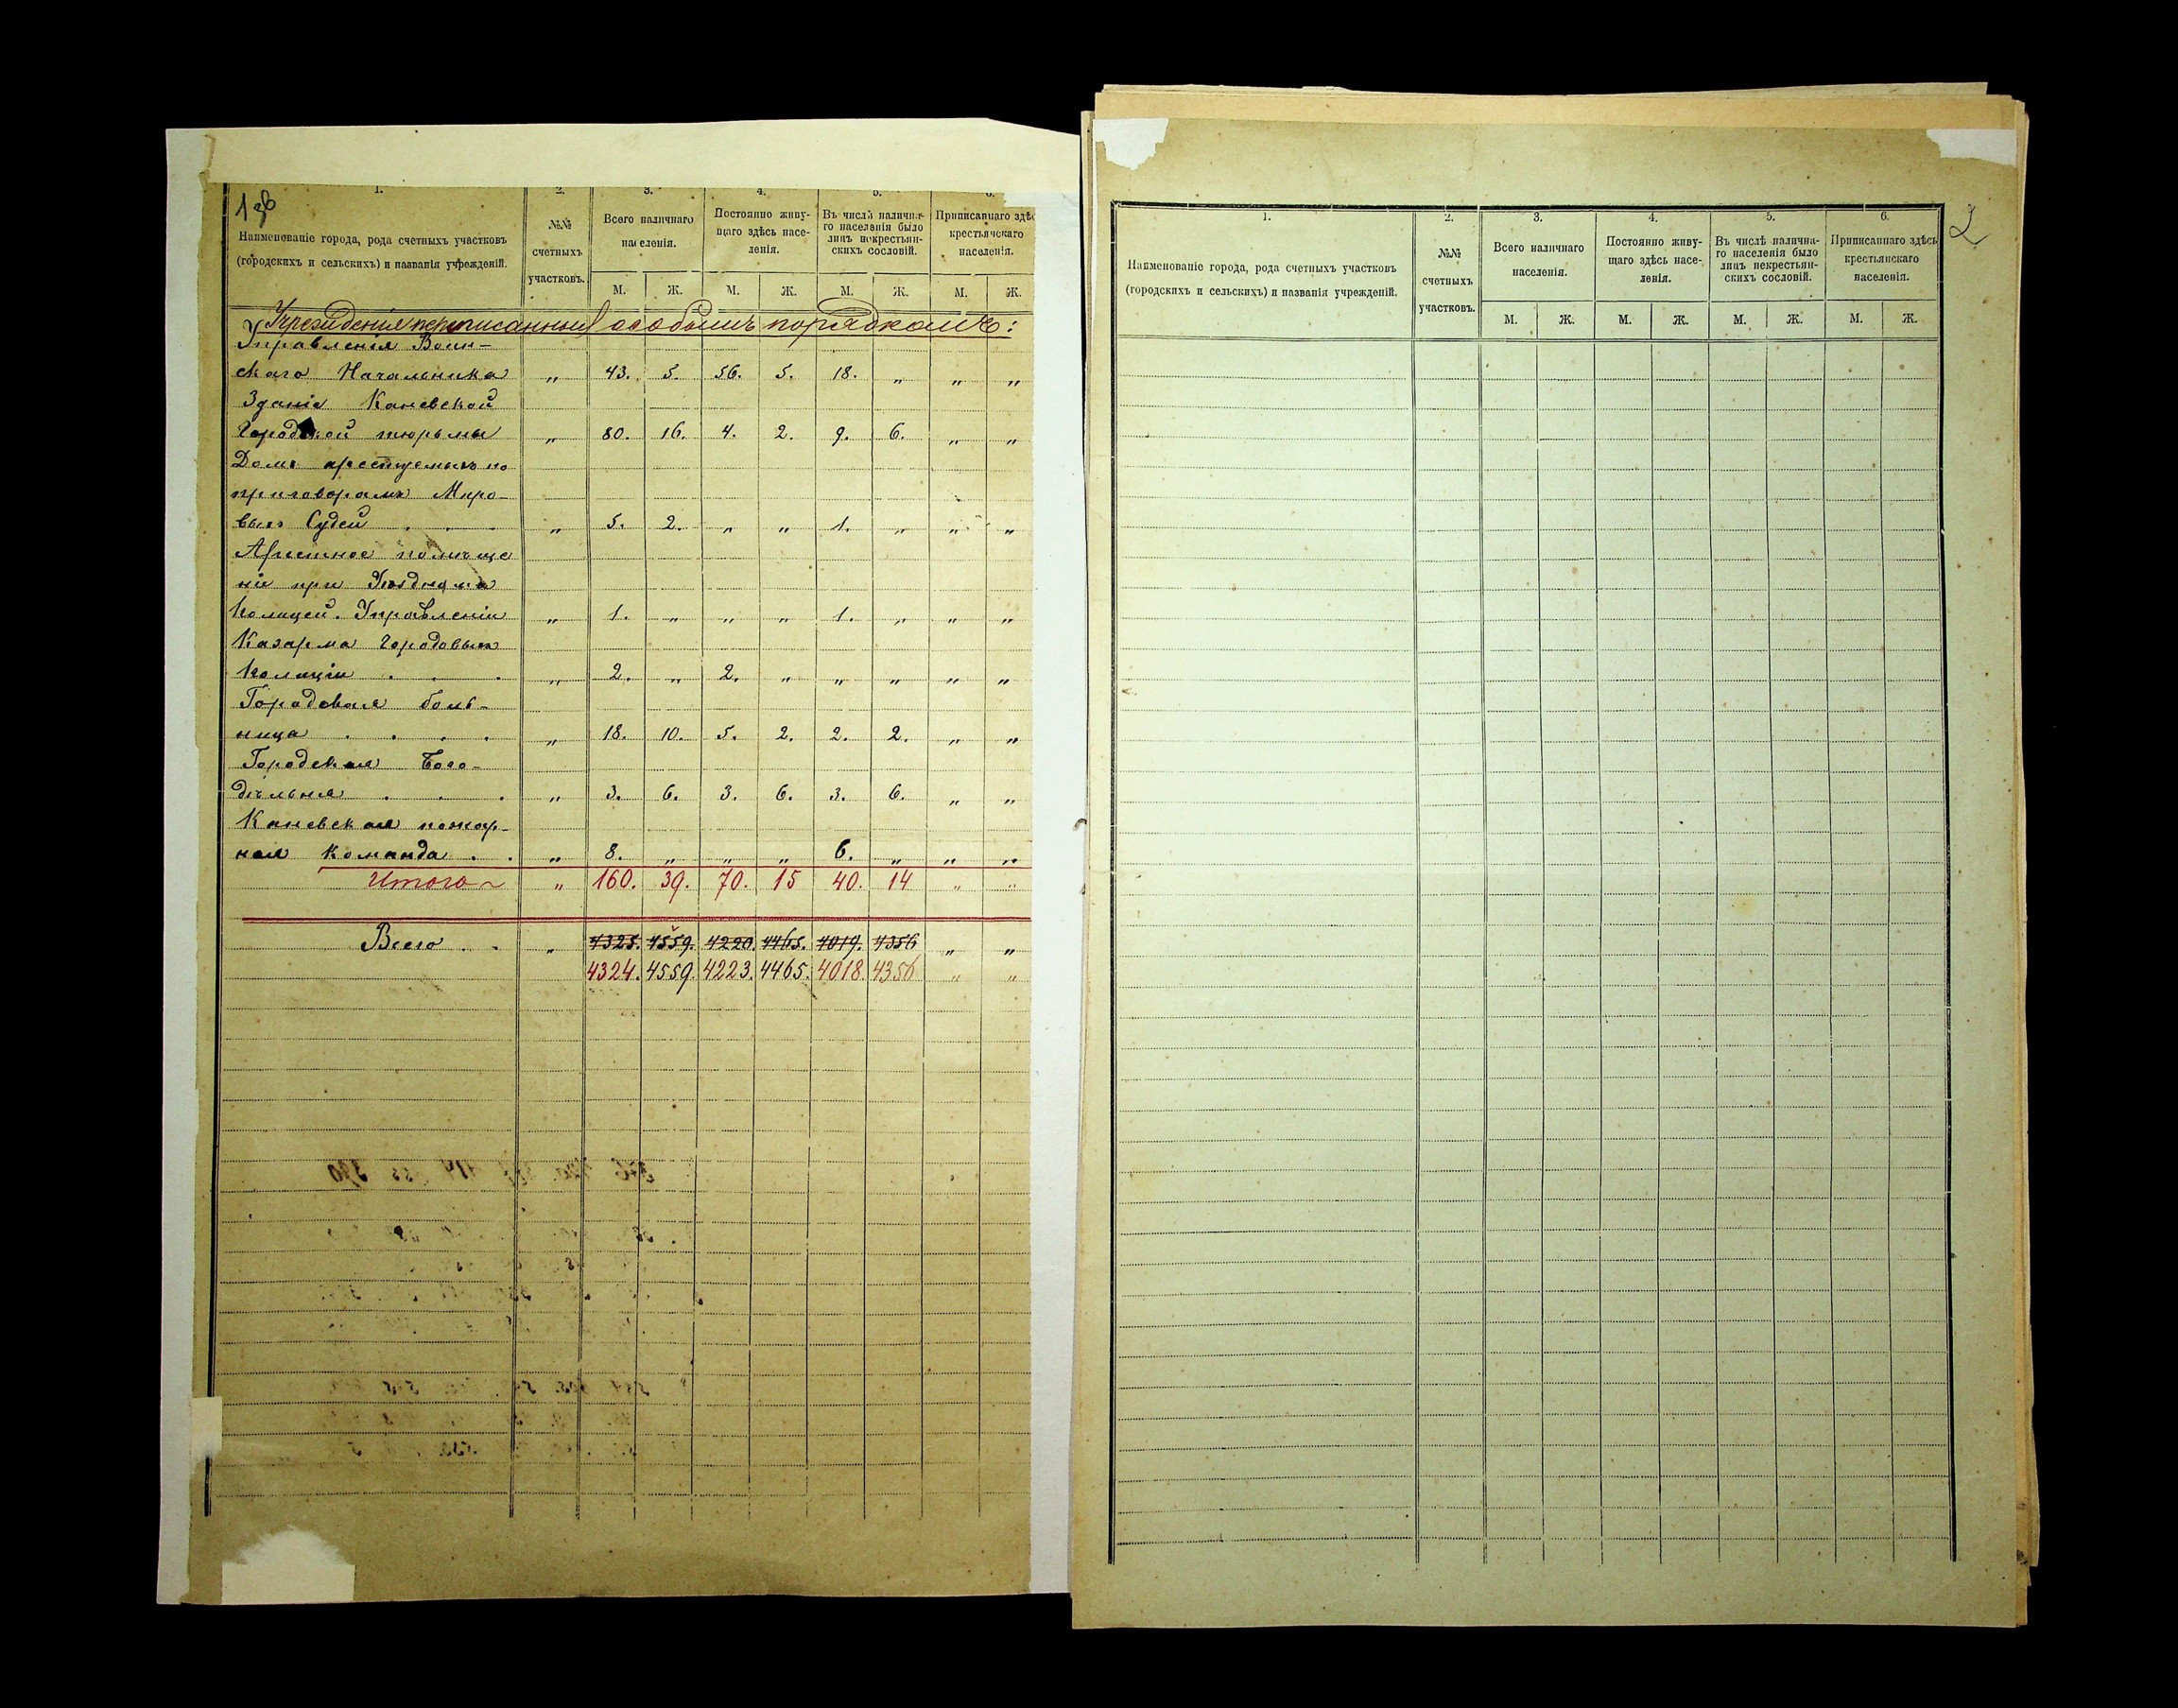 1.
2.
3.
4.
5.
6.
Наименованіе города, рода счетныхъ участковъ
(городскихъ и сельскихъ) и названія учрежденій.
№№
счетныхъ
участковъ.
Всего наличнаго
населенія.
Постоянно живу-
щаго здѣсь насе-
ленія.
Въ числѣ налична-
го населенія было
лицъ некрестьян-
скихъ сословій.
Приписаннаго здѣс
крестьянскаго
населенія.
М. Ж. М. Ж. М. Ж. М. Ж.
Учрежденія переписанныя особымъ порядкомъ:
Управленія Воин-
скаго Начальника „ 43. 5. 56. 5. 18. „ „ „
Зданіе Каневской
Городской тюрьмы „ 80. 16. 4. 2. 9. 6. „ „
Домъ арестуемыхъ по
приговорамъ Миро-
выхъ Судей . . . „ 5. 2. „ „ 1. „ „ „
Арестное помѣще
ніе при Уѣздномъ
Полицей. Управленіи „ 1. „ „ „ 1. „ „ „
Казарма Городовыхъ
Полиціи . . . „ 2. „ 2. „ „ „ „ „
Городовая боль-
ница . . . . „ 18. 10. 5. 2. 2. 2. „ „
Городская Бого-
дѣльня . . . „ 3. 6. 3. 6. 3. 6. „ „
Каневская пожар-
ная команда . . „ 8. „ „ „ 6. „ „ „
Итого „ 160. 39. 70. 15 40. 14 „ „
Всего . . „ 4325. 4559. 4220. 4465. 4019. 4356 „ „
4324. 4559. 4223. 4465. 4018. 4356 „ „
2
1.
2.
3.
4.
5.
6.
Наименованіе города, рода счетныхъ участковъ
(городскихъ и сельскихъ) и названія учрежденій.
№№
счетныхъ
участковъ.
Всего наличнаго
населенія.
Постоянно живу-
щаго здѣсь насе-
ленія.
Въ числѣ налична-
го населенія было
лицъ некрестьян-
скихъ сословій.
Приписаннаго здѣсь
крестьянскаго
населенія.
М. Ж. М. Ж. М. Ж. М. Ж.